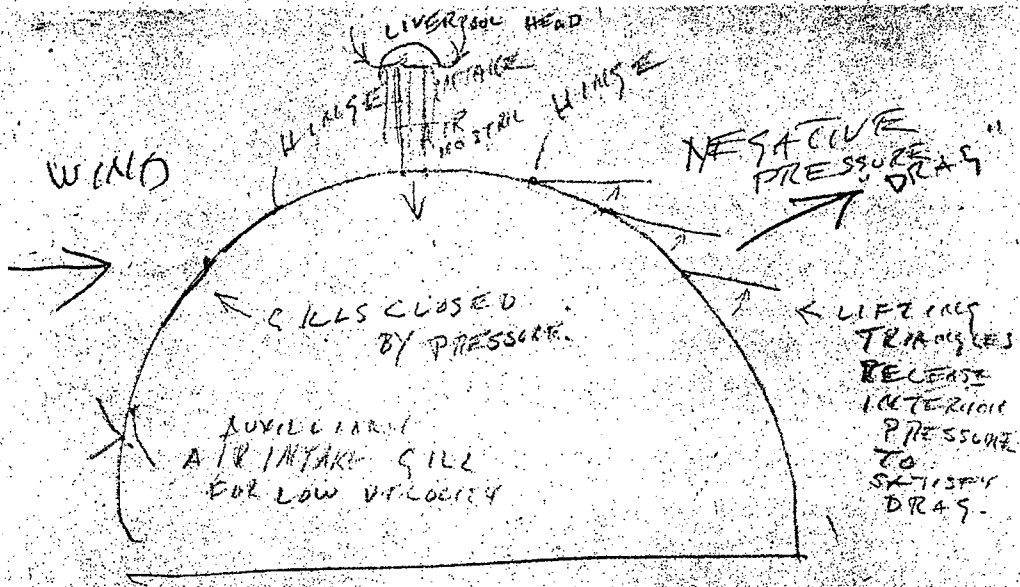 LIVERPOOL HEAD
HINGE
INTAKE
NOSTRIL
HINGE
WIND
NEGATIVE
PRESSURE
"DRAG"
GILLS CLOSED
BY PRESSURE.
LIFTING
TRIANGLES
RELEASE
INTERIOR
PRESSURE
TO
SATISFY
DRAG.
AUXILLIARY
AIR INTAKE GILL
FOR LOW VELOCITY